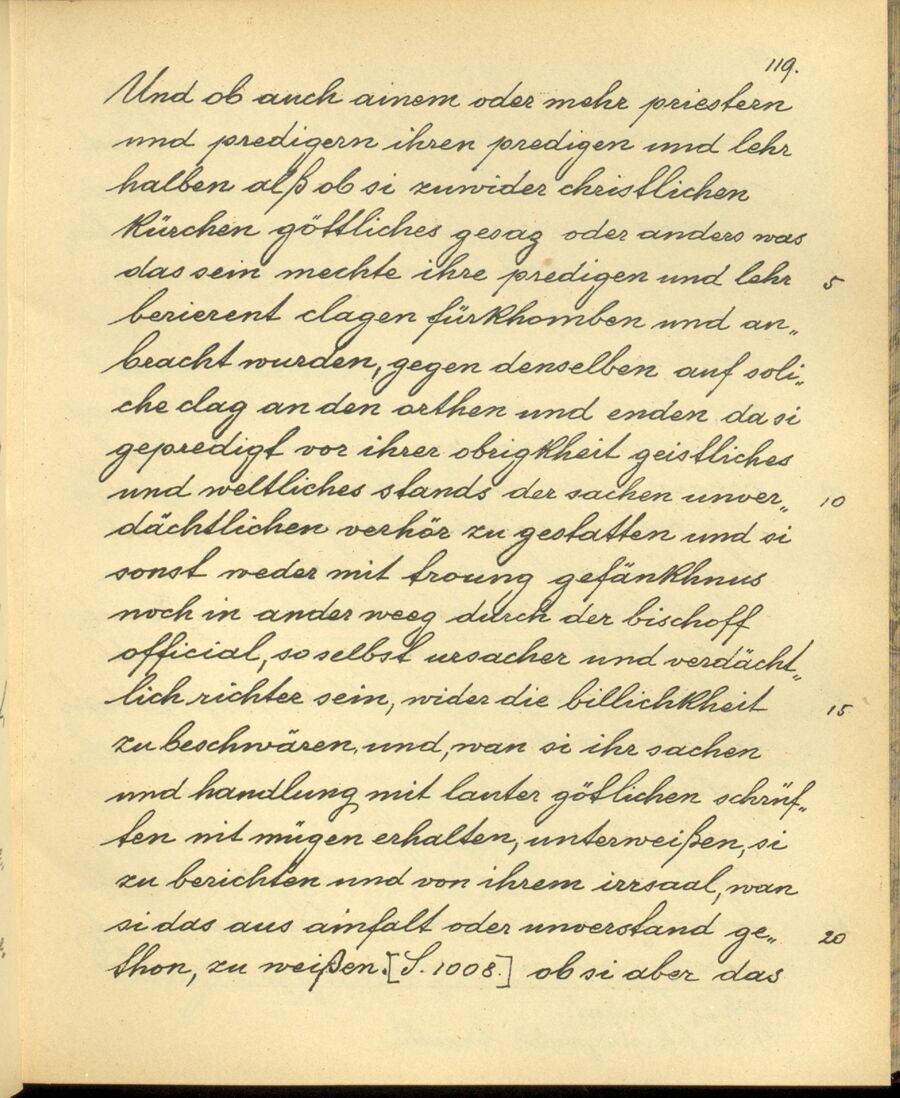 119.
Und ob auch ainem oder mehr priestern
und predigern ihren predigen und lehr
halben alß ob si zuwider christlichen
Kürchen göttliches gesaz oder anders was
das sein mechte ihre predigen und lehr 5
berierent clagen fürkhomben und an„
bracht wurden, gegen denselben auf soli„
che clag an den orthen und enden da si
gepredigt vor ihrer obrigkheit geistliches
und weltliches stands der sachen unver„ 10
dächtlichen verhör zu gestatten und si
sonst weder mit troung gefänkhnus
noch in ander weeg durch der bischoff
official, so selbst ursacher und verdächt„
lich richter sein, wider die billichkheit 15
zu beschwären, und, wan si ihr sachen
und handlung mit lauter götlichen schrüf„
ten nit mügen erhalten, unterweißen, si
zu berichten und von ihrem irrsaal, wan
si das aus ainfalt oder unverstand ge„ 20
thon, zu weißen. [S. 1008.] ob si aber das